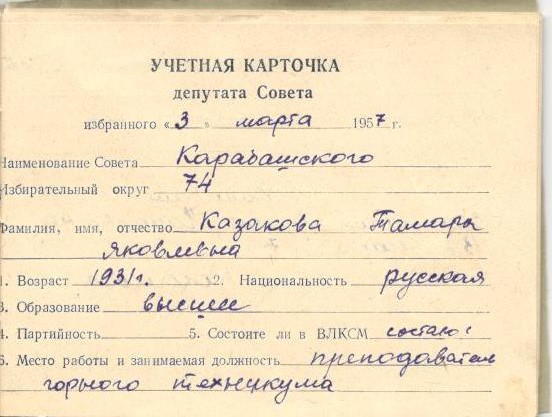 УЧЕТНАЯ КАРТОЧКА
депутата Совета
избранного « 3 » марта 1957 г.
Наименование Совета Карабашского
Избирательный округ 74
Фамилия, имя, отчество Казакова Тамара
Яковлевна
1. Возраст 1931г. 2. Национальность русская
3. Образование высшее
4. Партийность 5. Состоите ли в ВЛКСМ состаю
6. Место работы и занимаемая должность преподавател
горного техникума